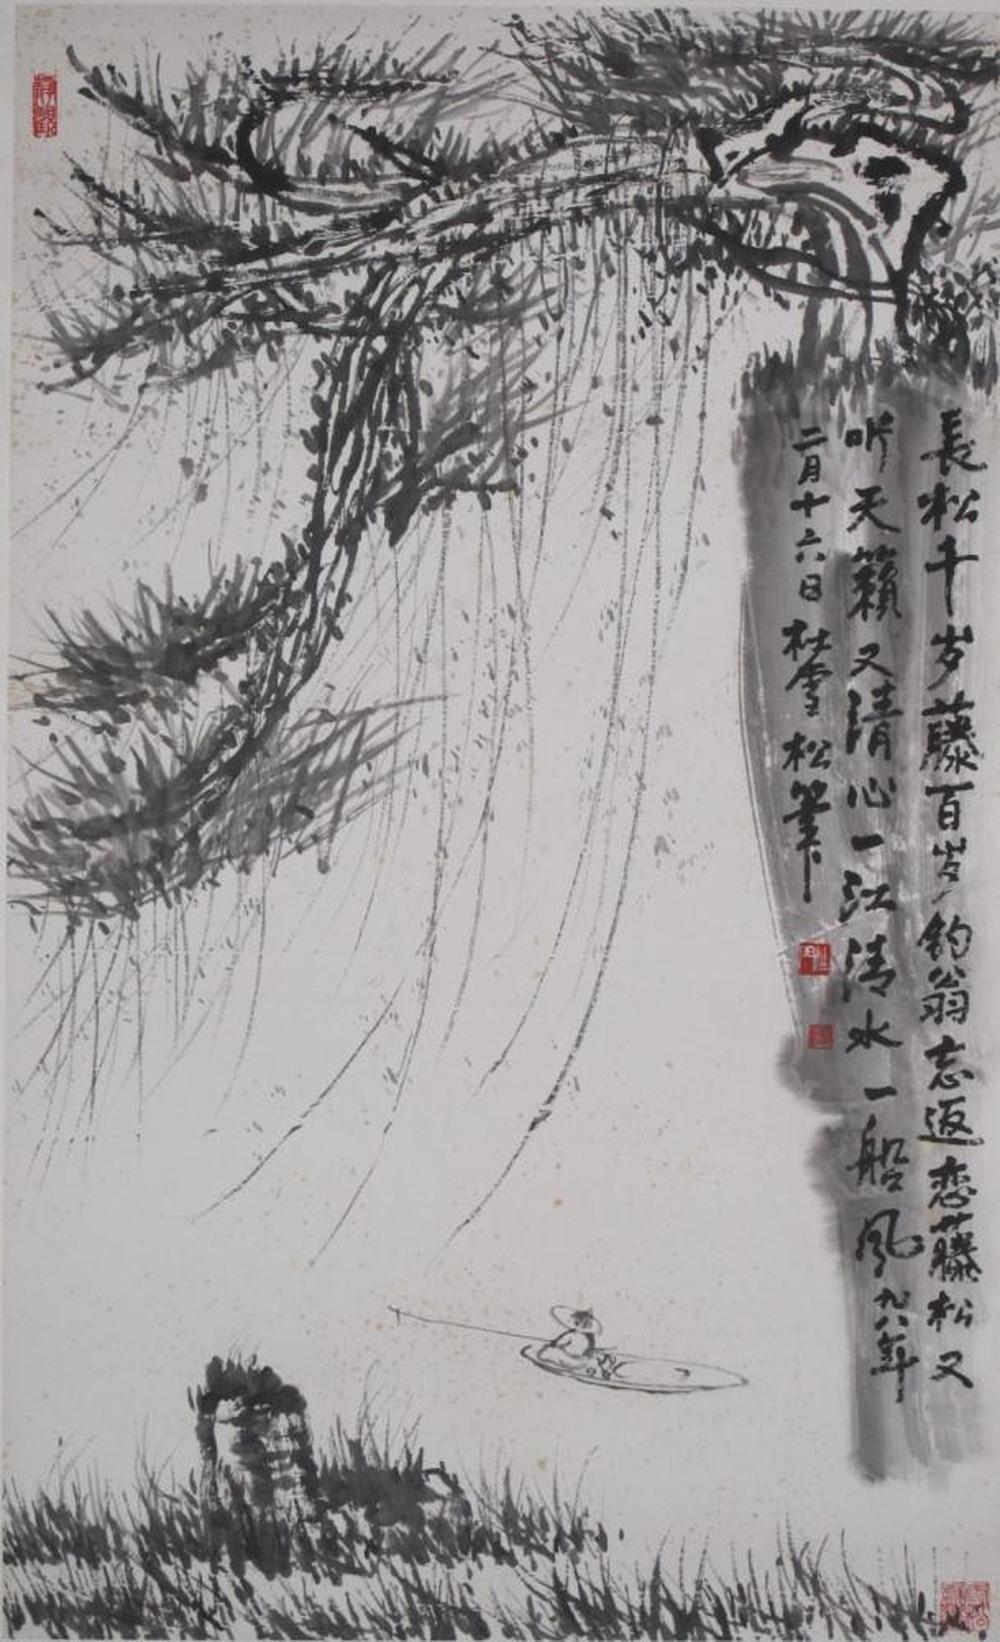 長松千岁藤百岁钓翁忘返恋藤松又
听天籁又清心一江清水一船风九八年
二月十六日杜雪松笔